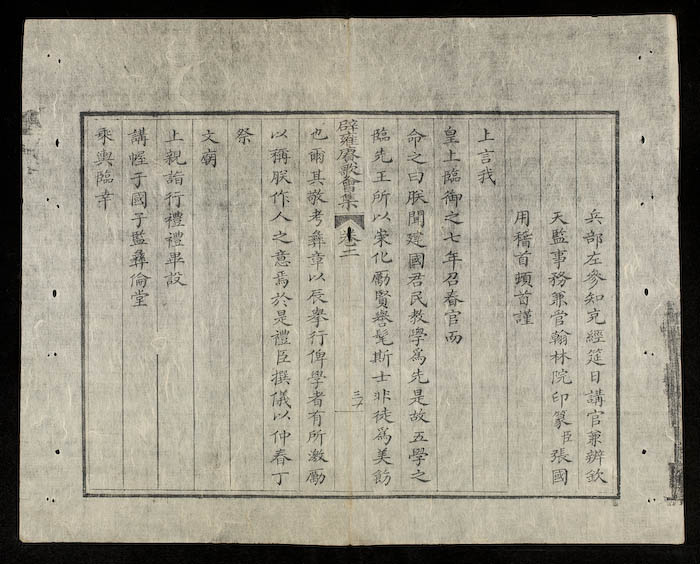 兵部左參知充經筵日講官兼辦欽
天監事務兼管翰林院印篆臣張國
用稽首頓首謹
上言我
皇上臨御之七年召春官而
命之曰朕聞建國君民教學為先是故五學之
臨先王所以崇化勵賢譽髦斯士非徒為美飭
辟雍賡歌會集 卷二
也爾其敬考彝章以辰舉行俾學者有所激勵
以稱朕作人之意焉於是禮臣撰儀以仲春丁
祭
文廟
上親詣行禮禮畢設
講幄于國子監彝倫堂
乘輿臨幸